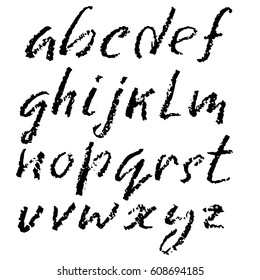 abcdef
ghijklm
nopqrst
uvwxyz
shutterstock.com · 608694185